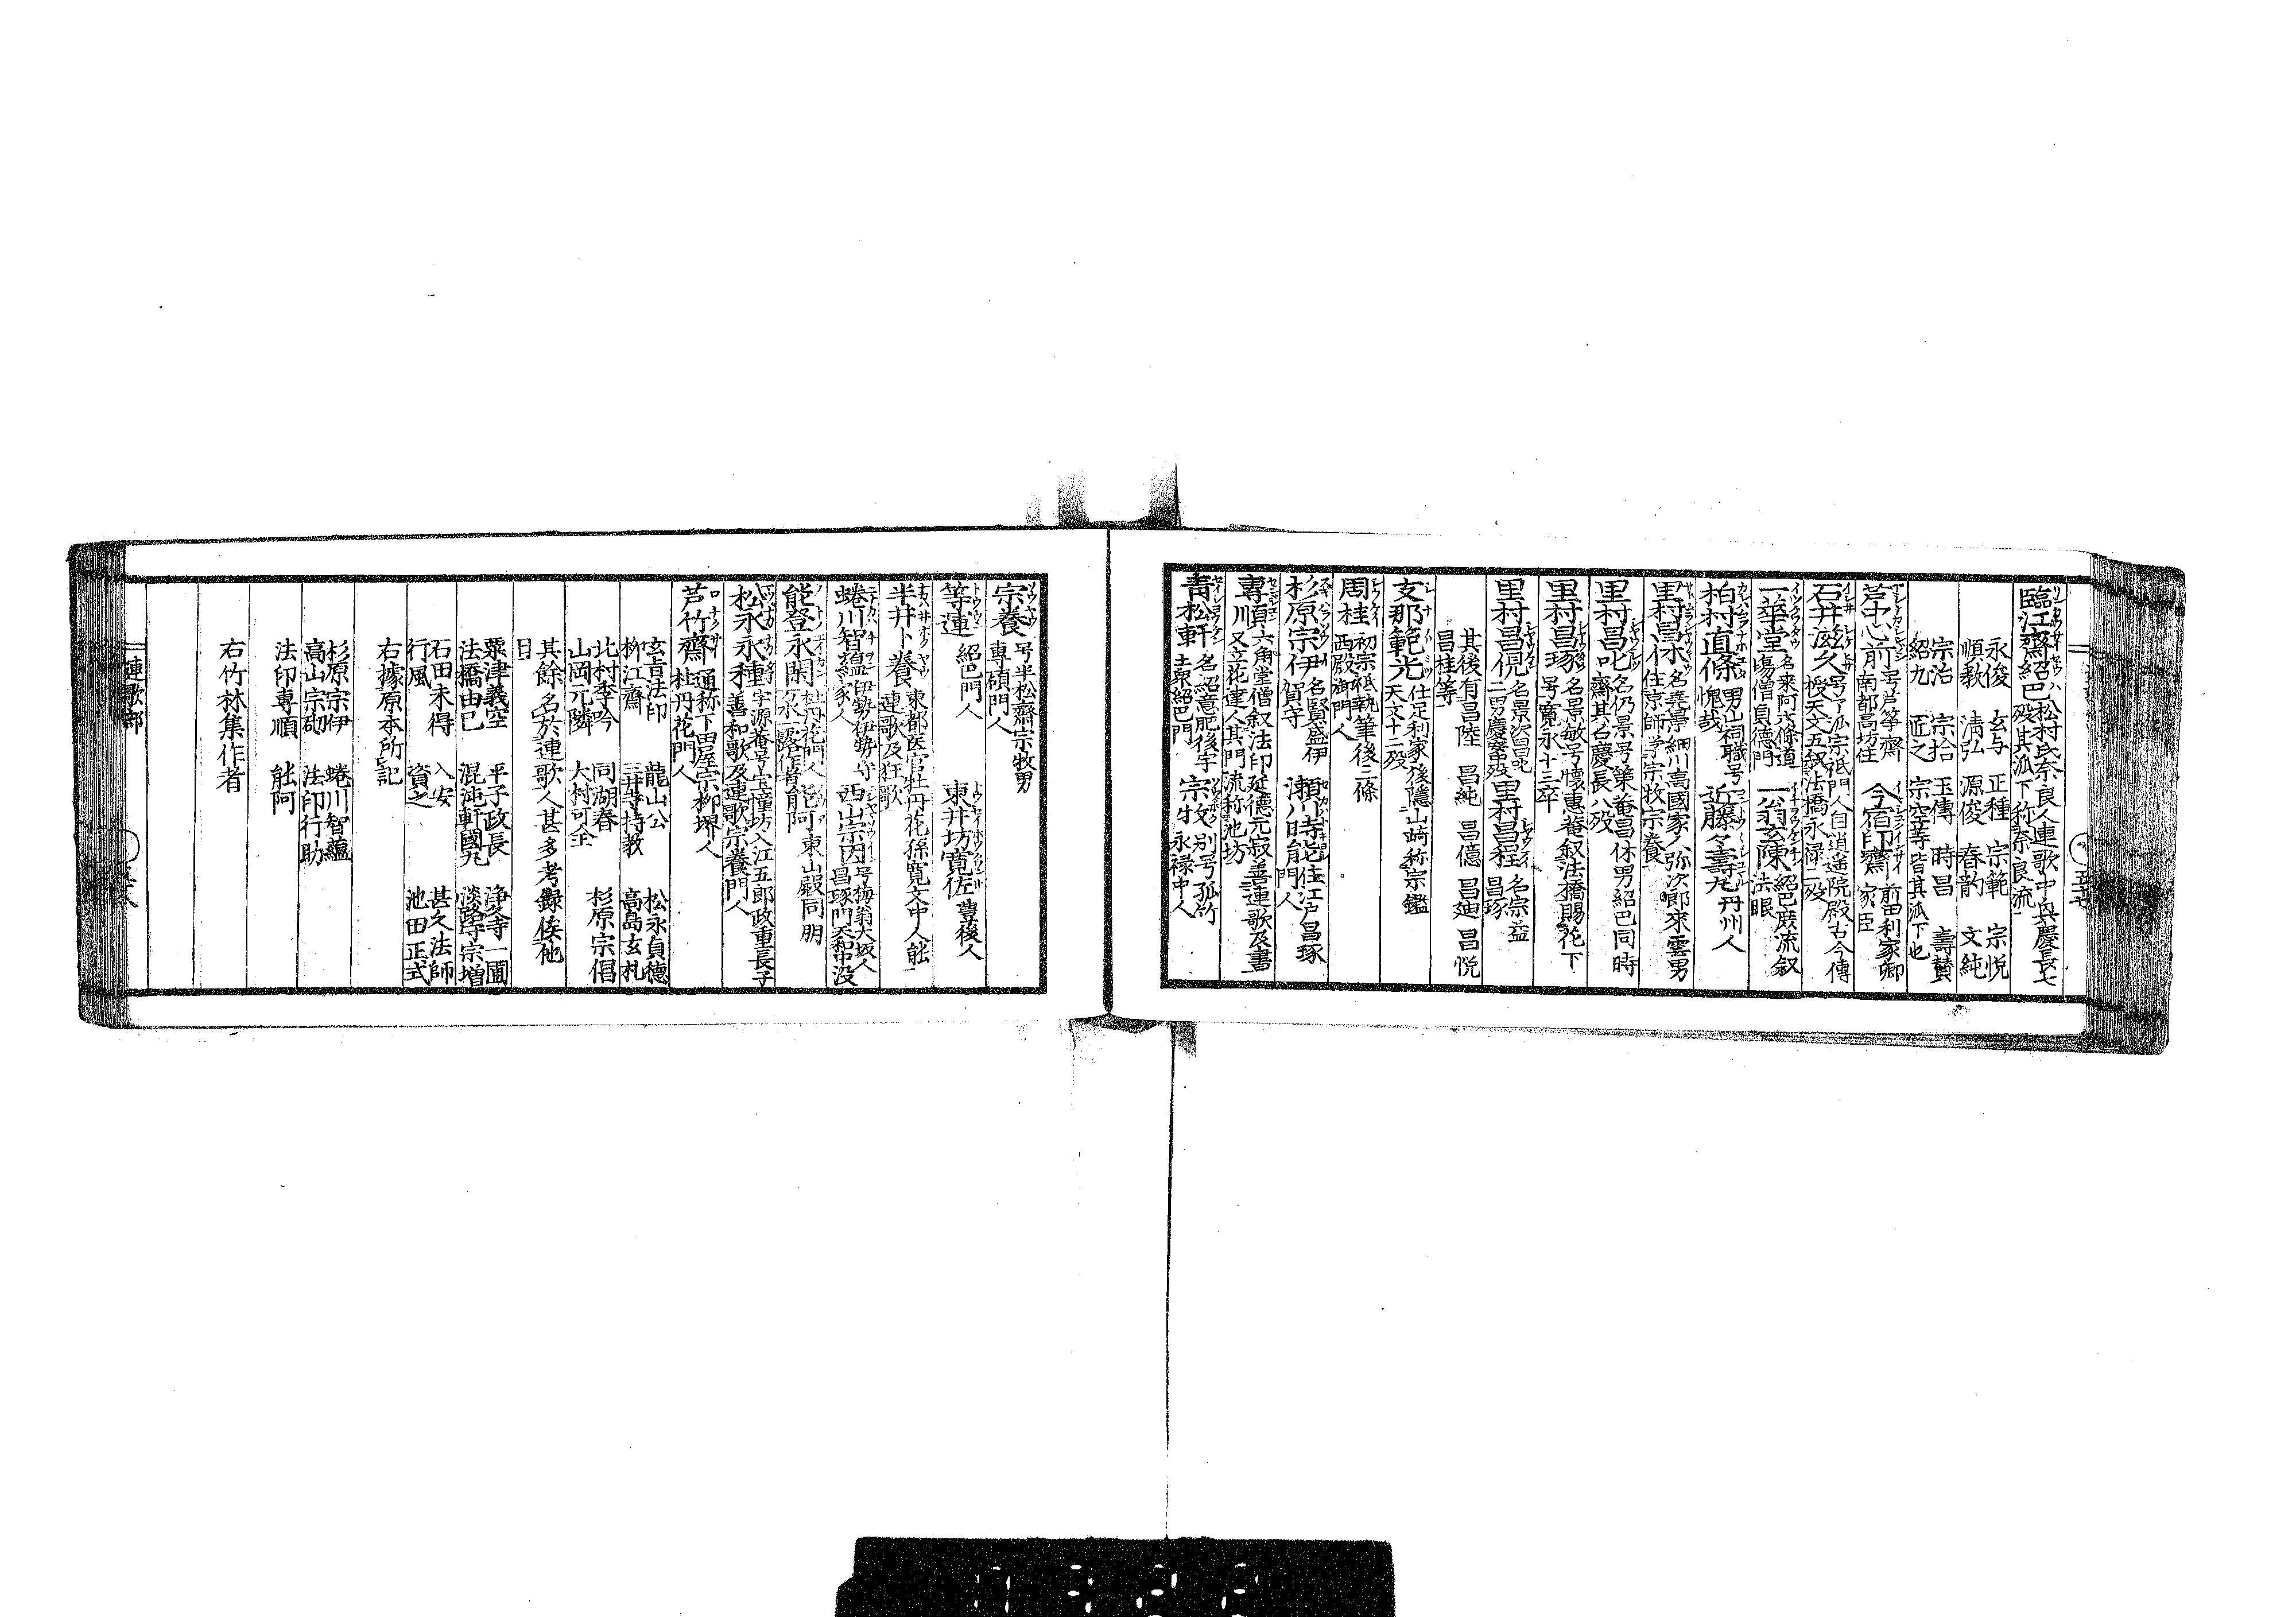 臨江齋紹巴 松村氏奈良人連歌中興慶長七
殁其派下称奈良流
永俊 玄与 正種 宗範 宗悦
順教 清弘 源俊 春韵 文純
宗治 宗拾 玉傳 時昌 壽賛
紹九 匠之 宗空等皆其派下也
芦中心前 号芦筆齋
南都高坊住
今宿印齋 前田利家卿
家臣
石井滋久 号了派宗祗門人自逍遥院殿古今傳
授天文五叙法橋永禄二殁
一華堂 名來阿六條道
塲僧貞德門
一翁玄陳 紹巴廣流叙
法眼
柏村直條 男山祠職号
愧哉
近藤壽九 丹州人
里村昌休 名堯景細川高國家人弥次郎來雲男
住京師学宗牧宗養
里村昌叱 名仍景号策菴昌休男紹巴同時
齋其名慶長八殁
里村昌琢 名景敏号懐惠菴叙法橋賜花下
号寬永十三卒
里村昌俔 名景次昌叱
二男慶安殁
里村昌程 名宗益
昌琢
其後有昌陸 昌純 昌億 昌廸 昌悦
昌桂等
支那範光 仕足利家後隱山崎称宗鑑
天文十二殁
周桂 初宗祗執筆後二條
西殿御門人
杉原宗伊 名賢盛伊
賀守
瀬川時能 住江戸昌琢
門人
專順 六角堂僧叙法印延德元寂善連歌及書
又立花達人其門流称池坊
青松軒 名紹意肥後宇
土衆紹巴門
宗牧 别号孤竹
永禄中人
宗養 号半松齋宗牧男
專碩門人
等連 紹巴門人
東井坊寬佐 豊後人
半井卜養 東都医官牡丹花孫寛文中人能
連歌及狂歌
蜷川智蘊 伊勢伊勢守
家人
西山宗因 号梅翁大坂人
昌琢門天和中没
能登永閑 牡丹花門人
万水一露作者
能阿 東山殿同朋
松永永種 字源菴号宝幢坊入江五郎政重長子
善和歌及連歌宗養門人
芦竹齋 通称下田屋宗柳堺人
牡丹花門人
玄旨法印 龍山公 松永貞德
柳江齋 三井寺持教 高島玄札
北村季吟 同湖春 杉原宗倡
山岡元隣 大村可全
其餘名於連歌人甚多考録俟他
日
粟津義空 平子政長 浄久寺一圃
法橋由己 混沌軒國丸 淡路守宗增
石田未得 入安 甚久法師
行風 資之 池田正式
右據原本所記
杉原宗伊 蜷川智蘊
高山宗砌 法印行助
法印專順 能阿
右竹林集作者
連歌部